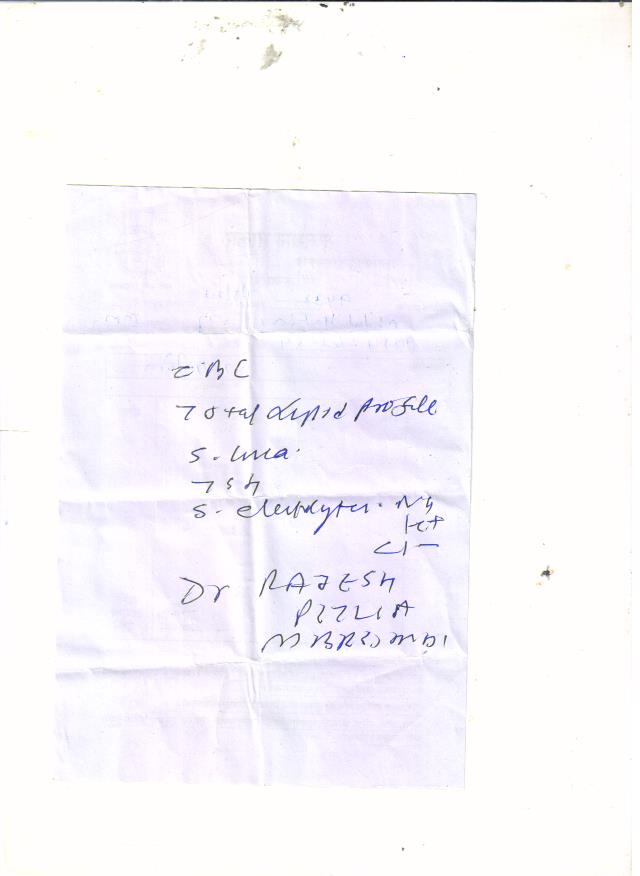 CBC
Total Lipid Profile
S. Urea.
TSH
S. electrolytes. Na
K+
Cl-
Dr RAJESH